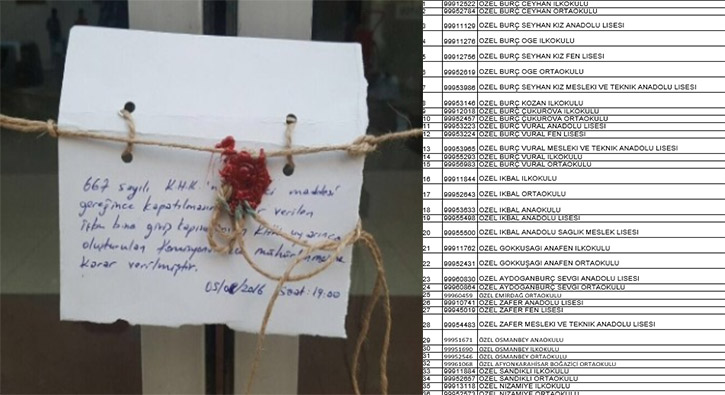 667 sayılı K.H.K.'n ci maddesi
gereğince kapatılmasına verilen
işbu bina giriş kapısının KHK uyarınca
oluşturulan Komisyonca mühürlenmesine
karar verilmiştir.
05/08/2016 Saat: 19:00
1 99912522 ÖZEL BURÇ CEYHAN İLKOKULU
2 99952784 ÖZEL BURÇ CEYHAN ORTAOKULU
3 99911129 ÖZEL BURÇ SEYHAN KIZ ANADOLU LİSESİ
4 99911276 ÖZEL BURÇ ÖGE İLKOKULU
5 99912756 ÖZEL BURÇ SEYHAN KIZ FEN LİSESİ
6 99952619 ÖZEL BURÇ ÖGE ORTAOKULU
7 99953986 ÖZEL BURÇ SEYHAN KIZ MESLEKİ VE TEKNİK ANADOLU LİSESİ
8 99953146 ÖZEL BURÇ KOZAN İLKOKULU
9 99912018 ÖZEL BURÇ ÇUKUROVA İLKOKULU
10 99952457 ÖZEL BURÇ ÇUKUROVA ORTAOKULU
11 99953223 ÖZEL BURÇ VURAL ANADOLU LİSESİ
12 99953224 ÖZEL BURÇ VURAL FEN LİSESİ
13 99953965 ÖZEL BURÇ VURAL MESLEKİ VE TEKNİK ANADOLU LİSESİ
14 99955293 ÖZEL BURÇ VURAL İLKOKULU
15 99956983 ÖZEL BURÇ VURAL ORTAOKULU
16 99911844 ÖZEL İKBAL İLKOKULU
17 99952643 ÖZEL İKBAL ORTAOKULU
18 99953633 ÖZEL İKBAL ANAOKULU
19 99955498 ÖZEL İKBAL ANADOLU LİSESİ
20 99955500 ÖZEL İKBAL ANADOLU SAĞLIK MESLEK LİSESİ
21 99911762 ÖZEL GÖKKUŞAĞI ANAFEN İLKOKULU
22 99952431 ÖZEL GÖKKUŞAĞI ANAFEN ORTAOKULU
23 99960830 ÖZEL AYDOĞANBURÇ SEVGİ ANADOLU LİSESİ
24 99960864 ÖZEL AYDOĞANBURÇ SEVGİ ORTAOKULU
25 99960459 ÖZEL EMİRDAĞ ORTAOKULU
26 99910741 ÖZEL ZAFER ANADOLU LİSESİ
27 99945019 ÖZEL ZAFER FEN LİSESİ
28 99954483 ÖZEL ZAFER MESLEKİ VE TEKNİK ANADOLU LİSESİ
29 99951671 ÖZEL OSMANBEY ANAOKULU
30 99951690 ÖZEL OSMANBEY İLKOKULU
31 99952546 ÖZEL OSMANBEY ORTAOKULU
32 99961068 ÖZEL AFYONKARAHİSAR BOĞAZİÇİ ORTAOKULU
33 99911884 ÖZEL SANDIKLI İLKOKULU
34 99952657 ÖZEL SANDIKLI ORTAOKULU
35 99913118 ÖZEL NİZAMİYE İLKOKULU
36 99952573 ÖZEL NİZAMİYE ORTAOKULU